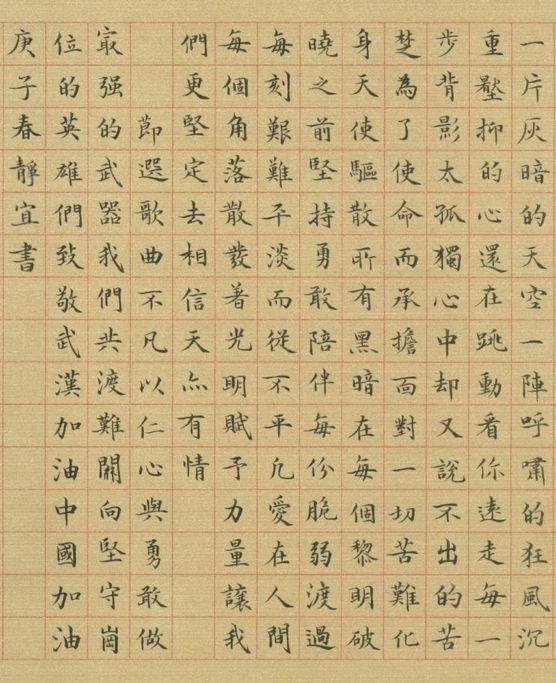 一片灰暗的天空一陣呼嘯的狂風沉
重壓抑的心還在跳動看你遠走每一
步背影太孤獨心中却又説不出的苦
楚為了使命而承擔面對一切苦難化
身天使驅散所有黑暗在每個黎明破
曉之前堅持勇敢陪伴每份脆弱渡過
每刻艱難平淡而從不平凡愛在人間
每個角落散發着光明賦予力量讓我
們更堅定去相信天亦有情
節選歌曲不凡以仁心與勇敢做
最强的武器我們共渡難關向堅守崗
位的英雄們致敬武漢加油中國加油
庚子春靜宜書